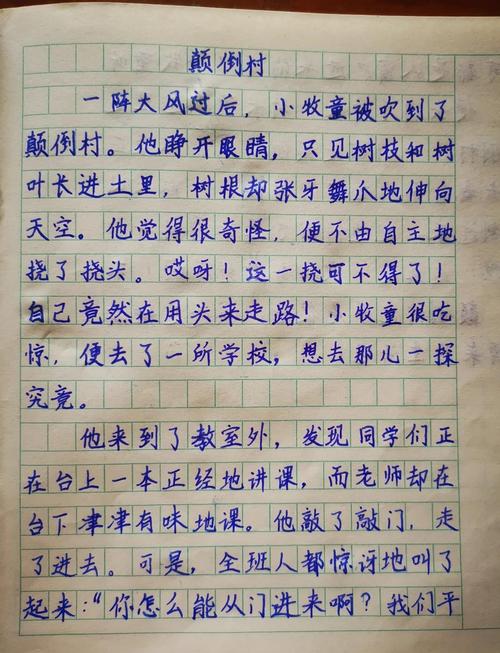 颠倒村
一阵大风过后，小牧童被吹到了
颠倒村。他睁开眼睛，只见树枝和树
叶长进土里，树根却张牙舞爪地伸向
天空。他觉得很奇怪，便不由自主地
挠了挠头。哎呀！这一挠可不得了！
自己竟然在用头来走路！小牧童很吃
惊，便去了一所学校，想去那儿一探
究竟。
他来到了教室外，发现同学们正
在台上一本正经地讲课，而老师却在
台下津津有味地课。他敲了敲门，走
了进去。可是，全班人都惊讶地叫了
起来：“你怎么能从门进来啊？我们平